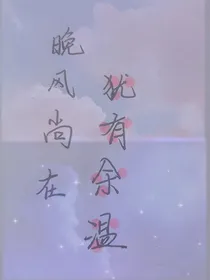 晚风尚在
犹有余温